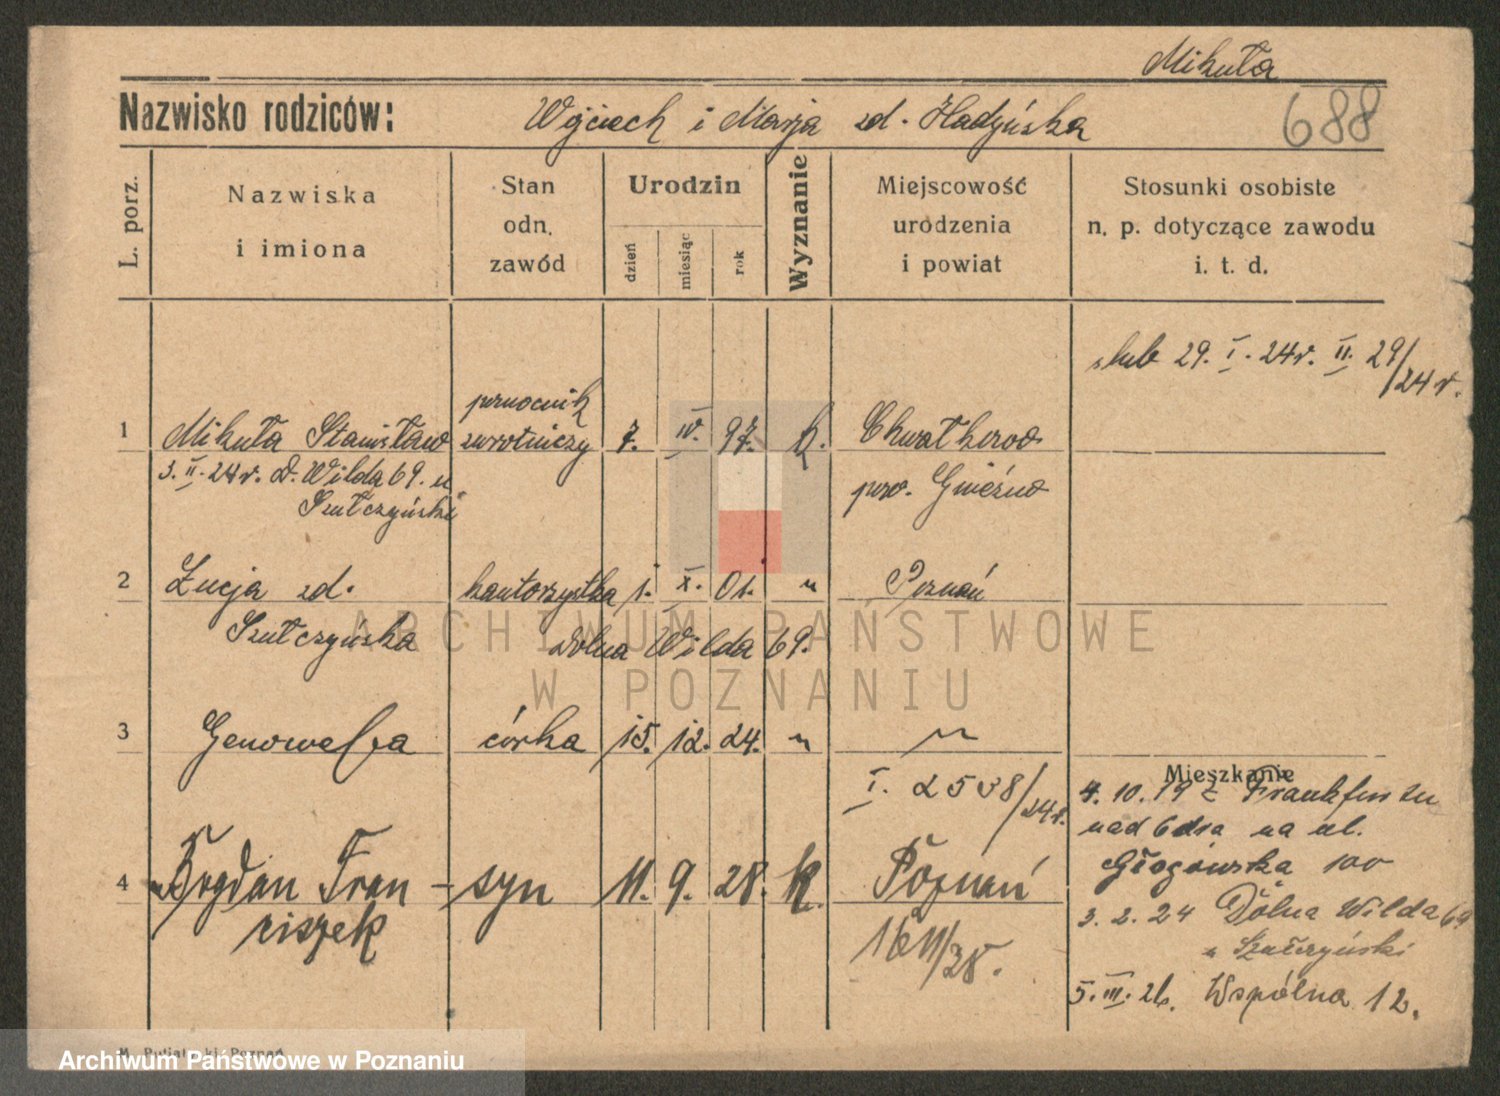 Mikuła
Nazwisko rodziców: Wojciech i Marja zd. Hadyńska
688
L. porz.
Nazwiska
i imiona
Stan
odn.
zawód
Urodzin
dzień
miesiąc
rok
Wyznanie
Miejscowość
urodzenia
i powiat
Stosunki osobiste
n. p. dotyczące zawodu
i. t. d.
ślub 29. I. 24 r. II. 29/24 r.
1 Mikuła Stanisław pomocnik zwrotniczy 7. IV. 97. k.
3. II. 24 r. D. Wilda 69. u pow. Gniezno
Szułczyński
2 Łucja zd. kantorzystka 1. X. 01. " Poznań
Szułczyńska Dolna Wilda 69.
3 Genowefa córka 15. 12. 24. " "
I. 2508/24 r.
Mieszkanie
4. 10. 19 z Frankfurtu
nad Odrą na ul.
Głogówska 100
4 Bogdan Fran- syn 11. 9. 28. k. Poznań
ciszek
3. 2. 24 Dolna Wilda 69
u Szułczyński
5. III. 26. Wspólna 12.
ARCHIWUM PAŃSTWOWE
W POZNANIU
Archiwum Państwowe w Poznaniu